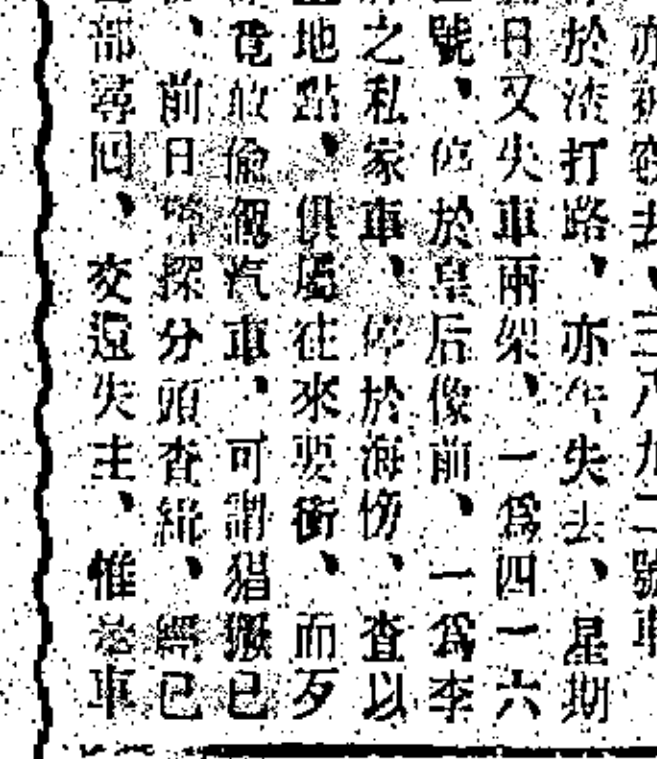 亦被竊去、三八九二號車
於渣打路、亦失去、星期
日又失車兩架、一為四一六
號、停於皇后像前、一為李
之私家車、停於海傍、查以
地點、俱屬往來要衝、而歹
竟敢偷駕汽車、可謂猖獗已
、前日警探分頭查緝、經已
部尋回、交還失主、惟老車